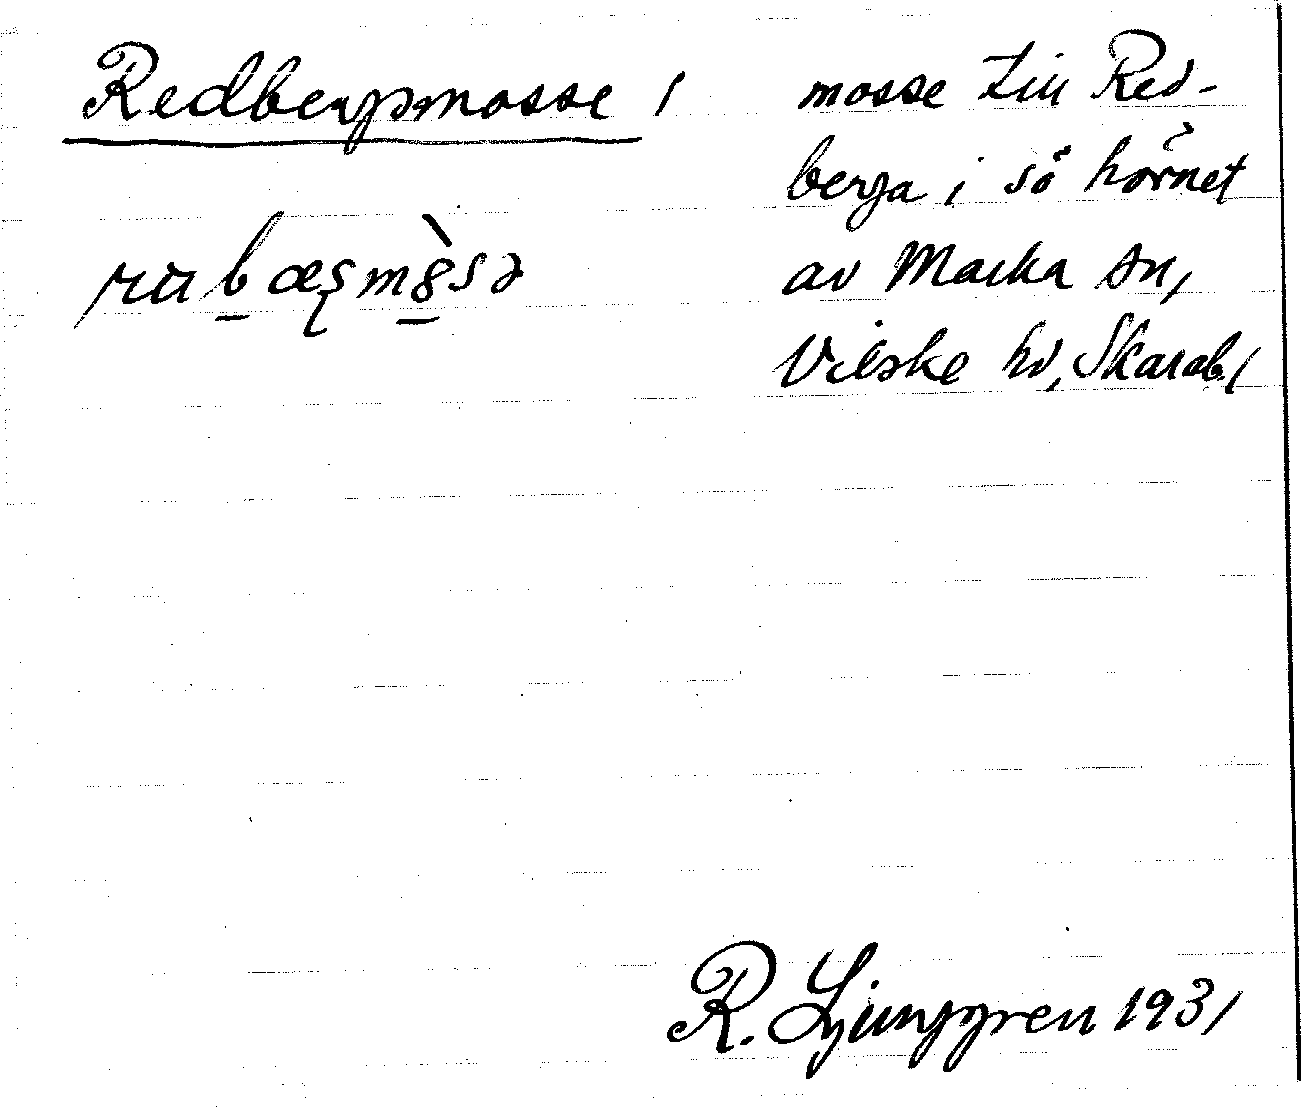 Redbergsmosse /
mosse till Red-
berga i sö hörnet
av Marka sn,
Vilske hd, Skarab. /
R. Ljunggren 1931